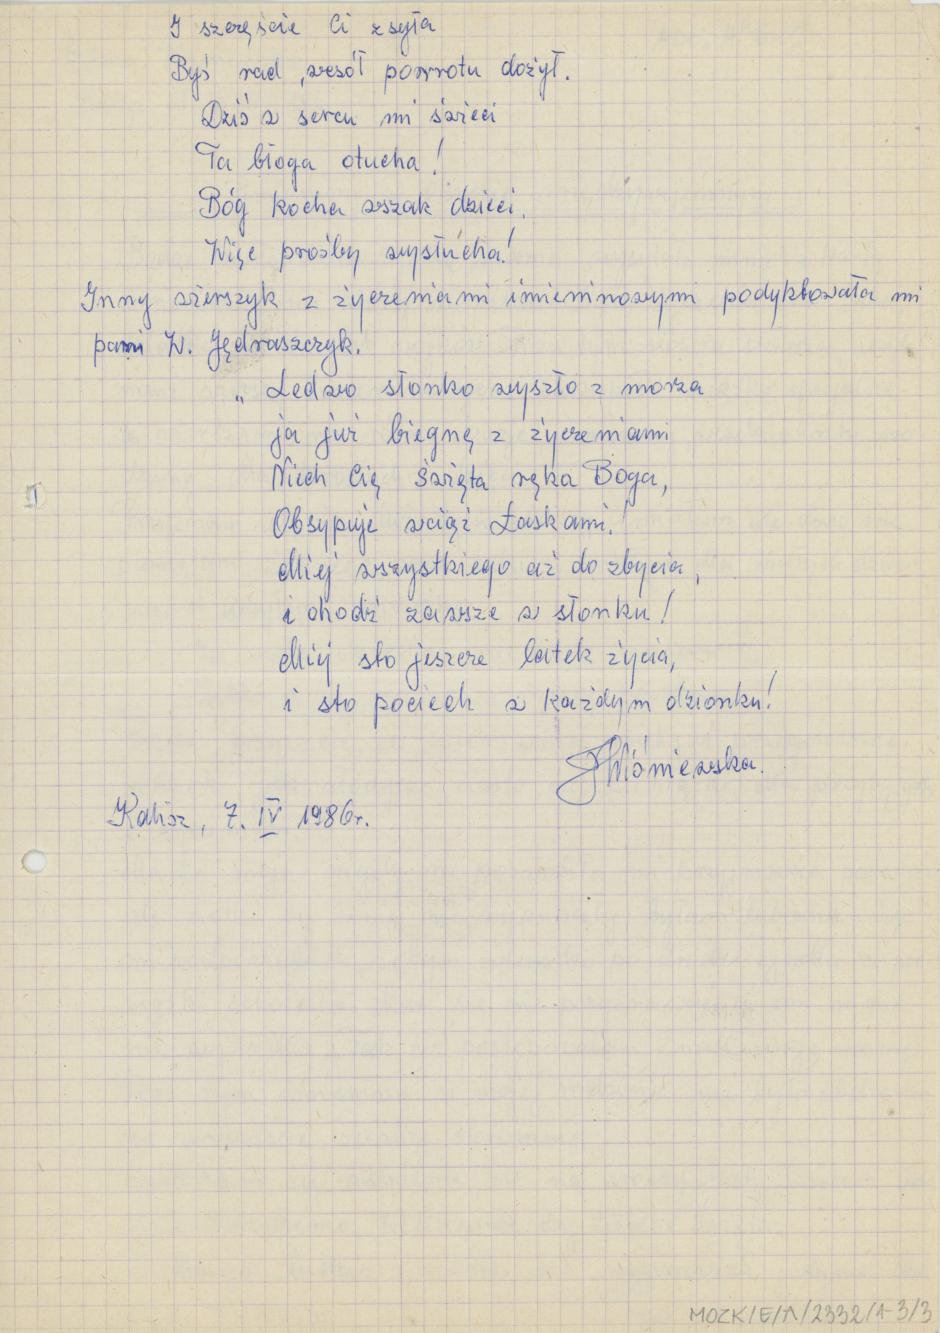 I szczęście Ci zsyła
Byś rad, wesół powrotu dożył.
Dziś w sercu mi świeci
Ta błoga otucha!
Bóg kocha wszak dzieci,
Więc prośby wysłucha!
Inny wierszyk z życzeniami imieninowymi podyktowała mi
pani W. Jędraszczyk.
„Ledwo słonko wyszło z morza
ja już biegnę z życzeniami
Niech Cię święta ręka Boga,
Obsypuje wciąż Łaskami!
Miej wszystkiego aż do zbycia,
i chodź zawsze w słonku!
Miej sto jeszcze latek życia,
i sto pociech w każdym dzionku!
Wiśniewska.
Kalisz, 7. IV 1986r.
MOZK/E/A/2332/1-3/3